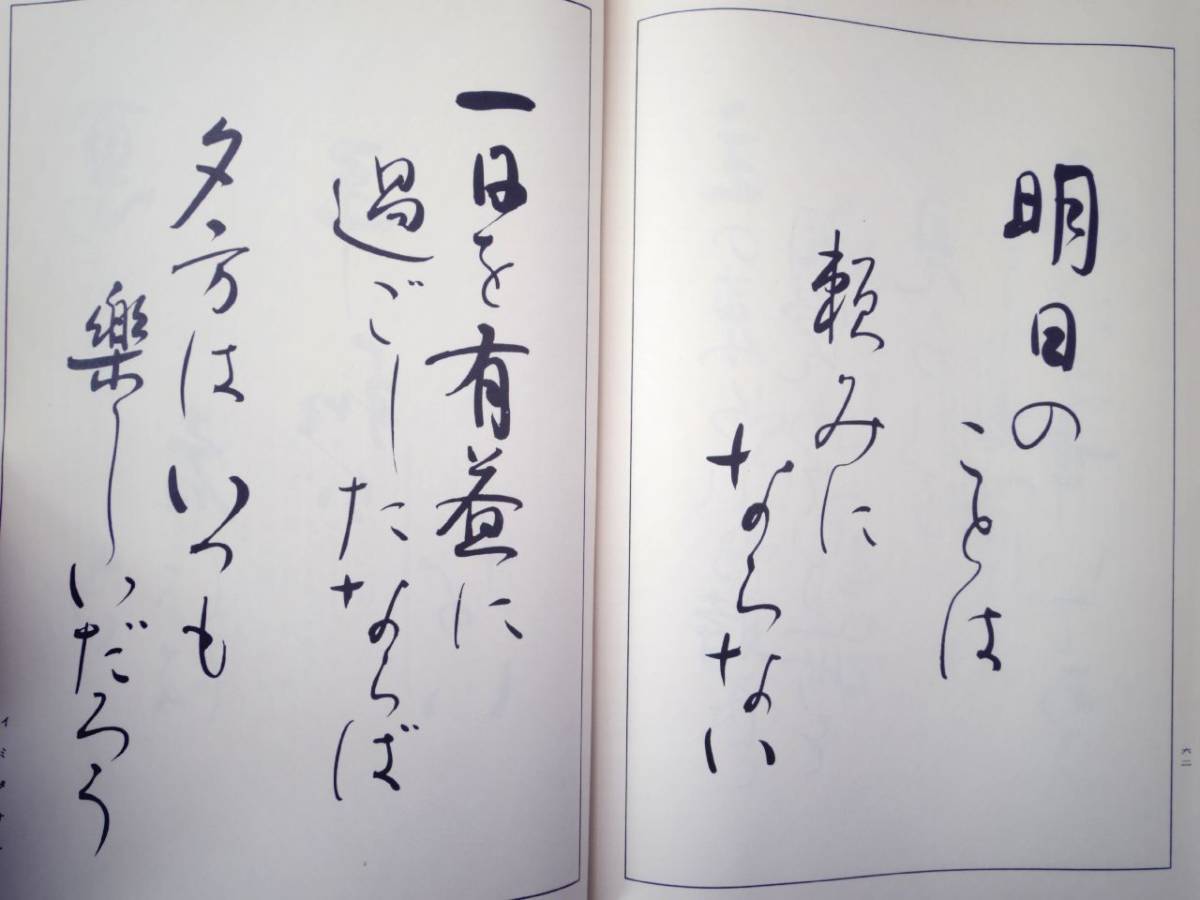 明日の
ことは
頼みに
ならない
六二
一日を有益に
過ごしたならば
夕方はいつも
樂しいだろう